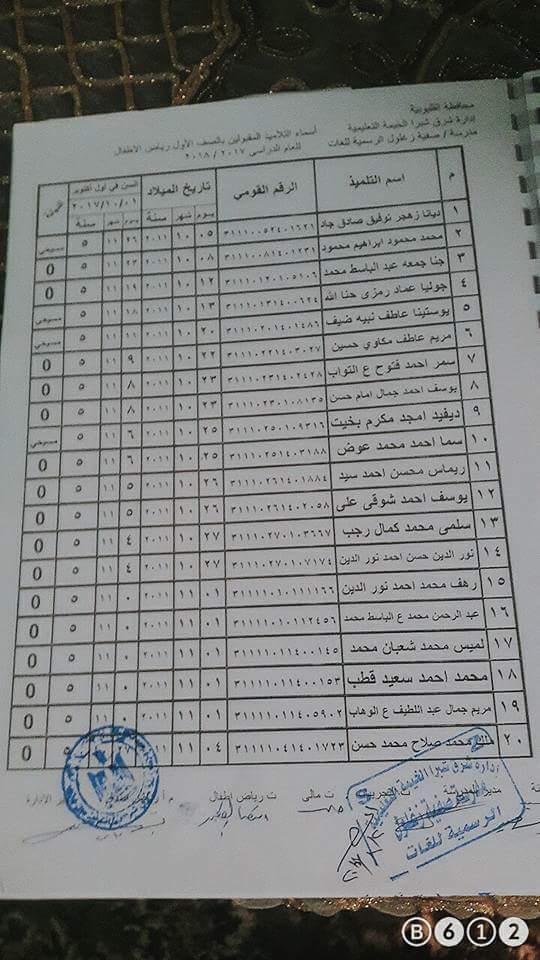 محافظة القليوبية
إدارة شرق شبرا الخيمة التعليمية
مدرسة / صفية زغلول الرسمية للغات
أسماء التلاميذ المقبولين بالصف الأول رياض الاطفال
للعام الدراسى ٢٠١٧ / ٢٠١٨
م اسم التلميذ الرقم القومي تاريخ الميلاد السن في أول أكتوبر
٢٠١٧/١٠/٠١
يوم شهر سنة يوم شهر سنة
١ ديانا زهجر توفيق صادق جاد ٣١١١٠٠٥٢٤٠١٦٢١ ٠٥ ١٠ ٢٠١١ ٢٦ ١١ ٥ مسيحى
٢ محمد محمود ابراهيم محمود ٣١١١٠٠٨١٤٠١٢٣١ ٠٨ ١٠ ٢٠١١ ٢٣ ١١ ٥ 0
٣ جنا جمعه عبد الباسط محمد ٣١١١٠١٢٠١٠٥١٠٦ ١٢ ١٠ ٢٠١١ ١٩ ١١ ٥ 0
٤ جوليا عماد رمزى حنا الله ٣١١١٠١٣١٤٠٠٦٢٤ ١٣ ١٠ ٢٠١١ ١٨ ١١ ٥ مسيحى
٥ يوستينا عاطف نبيه ضيف ٣١١١٠٢٠١٤٠١٤٨٦ ٢٠ ١٠ ٢٠١١ ١١ ١١ ٥ مسيحى
٦ مريم عاطف مكاوي حسين ٣١١١٠٢٢١٤٠٣٠٢٧ ٢٢ ١٠ ٢٠١١ ٩ ١١ ٥ 0
٧ سمر احمد فتوح ع التواب ٣١١١٠٢٣١٤٠٢٤٢٨ ٢٣ ١٠ ٢٠١١ ٨ ١١ ٥ 0
٨ يوسف احمد جمال امام حسن ٣١١١٠٢٣٠١٠٨١٣٥ ٢٣ ١٠ ٢٠١١ ٨ ١١ ٥ 0
٩ ديفيد امجد مكرم بخيت ٣١١١٠٢٥٠١٠٩٣١٦ ٢٥ ١٠ ٢٠١١ ٦ ١١ ٥ مسيحى
١٠ سما احمد محمد عوض ٣١١١٠٢٥١٤٠٣١٨٨ ٢٥ ١٠ ٢٠١١ ٦ ١١ ٥ 0
١١ ريماس محسن احمد سيد ٣١١١٠٢٦١٤٠١٨٨٤ ٢٦ ١٠ ٢٠١١ ٥ ١١ ٥ 0
١٢ يوسف احمد شوقى على ٣١١١٠٢٦١٤٠٢٠٥٨ ٢٦ ١٠ ٢٠١١ ٥ ١١ ٥ 0
١٣ سلمى محمد كمال رجب ٣١١١٠٢٧٠١٠٣٦٦٧ ٢٧ ١٠ ٢٠١١ ٤ ١١ ٥ 0
١٤ نور الدين حسن احمد نور الدين ٣١١١٠٢٧٠١٠٧١٧٤ ٢٧ ١٠ ٢٠١١ ٤ ١١ ٥ 0
١٥ رهف محمد احمد نور الدين ٣١١١١٠١٠١١١١٦٦ ٠١ ١١ ٢٠١١ ٠ ١١ ٥ 0
١٦ عبد الرحمن محمد ع الباسط محمد ٣١١١١٠١٠١١٢٤٥٦ ٠١ ١١ ٢٠١١ ٠ ١١ ٥ 0
١٧ لميس محمد شعبان محمد ٣١١١١٠١١٤٠٠١٤٥ ٠١ ١١ ٢٠١١ ٠ ١١ ٥ 0
١٨ محمد احمد سعيد قطب ٣١١١١٠١١٤٠٠١٥٣ ٠١ ١١ ٢٠١١ ٠ ١١ ٥ 0
١٩ مريم جمال عبد اللطيف ع الوهاب ٣١١١١٠١١٤٠٥٩٠٢ ٠١ ١١ ٢٠١١ ٠ ١١ ٥ 0
٢٠ ملك محمد صلاح محمد حسن ٣١١١١٠٤١٤٠١٧٢٣ ٠٤ ١١ ٢٠١١ ١١ ٥ 0
مدير المدرسة ت مالى ت رياض اطفال الإدارة
إدارة شرق شبرا الخيمة
الرسمية للغات
B612